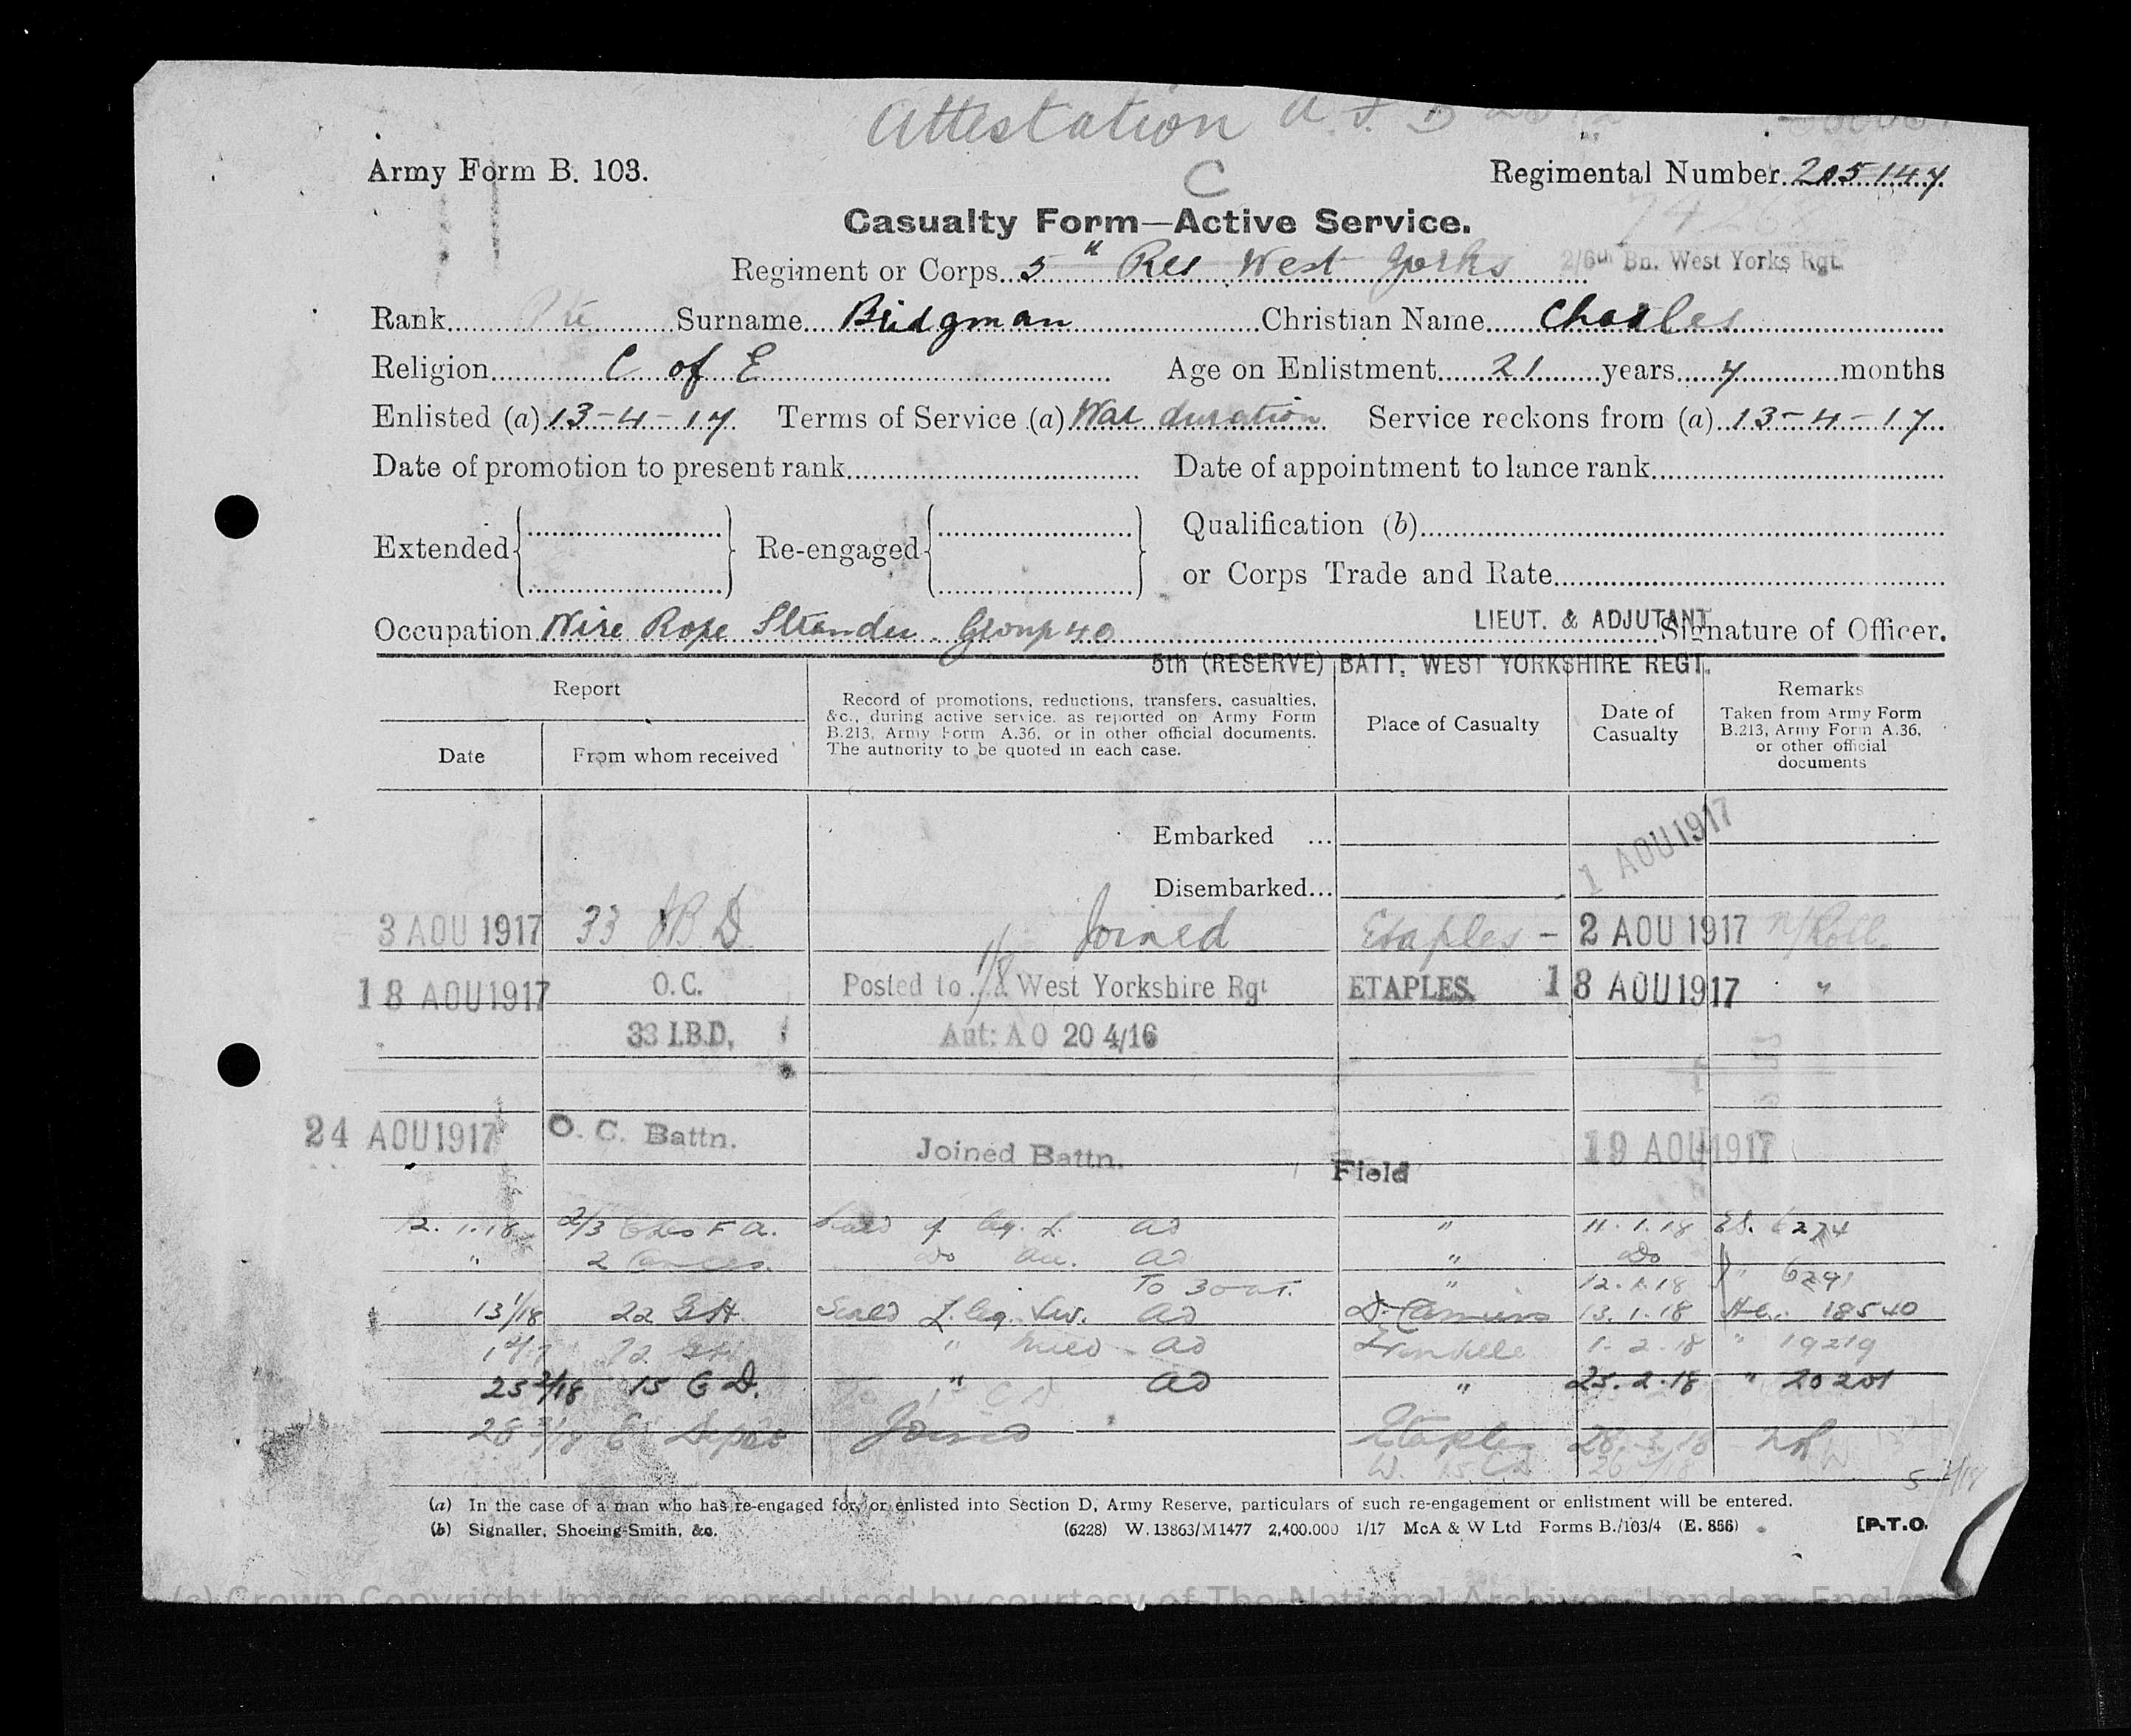 Attestation A. F. B
Army Form B. 103.
C
Regimental Number 205147
Casualty Form—Active Service.
Regiment or Corps 5th Res West Yorks 2/6th Bn. West Yorks Rgt.
Rank Pte Surname Bridgman Christian Name Charles
Religion C of E Age on Enlistment 21 years 7 months
Enlisted (a) 13-4-17. Terms of Service (a) War duration Service reckons from (a) 13-4-17
Date of promotion to present rank Date of appointment to lance rank
Extended Re-engaged Qualification (b)
or Corps Trade and Rate
Occupation Wire Rope Strander. Group 40 LIEUT. & ADJUTANT Signature of Officer.
5th (RESERVE) BATT, WEST YORKSHIRE REGT.
Report
Date
From whom received
Record of promotions, reductions, transfers, casualties,
&c., during active service. as reported on Army Form
B.213, Army Form A.36, or in other official documents.
The authority to be quoted in each case.
Place of Casualty
Date of
Casualty
Remarks
Taken from Army Form
B.213, Army Form A.36,
or other official
documents
Embarked ...
Disembarked... 1 AOU 1917
3 AOU 1917 33 IBD Joined Etaples - 2 AOU 1917 n/Roll.
18 AOU 1917 O.C. Posted to 1/8 West Yorkshire Rgt ETAPLES. 18 AOU 1917 "
33 I.B.D, Aut: AO 20 4/16
24 AOU 1917 O. C. Battn. Joined Battn. Field 19 AOU 1917
12.1.18 2/3 F A. leg L. ad " 11.1.18 6274
" 2 do ad " do
To 30 " 12.1.18 " 6291
13 1/18 22 GH Scald L. leg ad D. Camiers 13.1.18 18540
" ad 1.2.18 " 19219
25 2/18 15 C D. " ad " 25.2.18 " 20201
28 Depot Joined Etaples 28 18
(a) In the case of a man who has re-engaged for, or enlisted into Section D, Army Reserve, particulars of such re-engagement or enlistment will be entered.
(b) Signaller, Shoeing-Smith, &c. (6228) W. 13863/M1477 2,400.000 1/17 McA & W Ltd Forms B./103/4 (E. 866) [P.T.O.
(c) Crown Copyright Images reproduced by courtesy of The National Archives, London, England